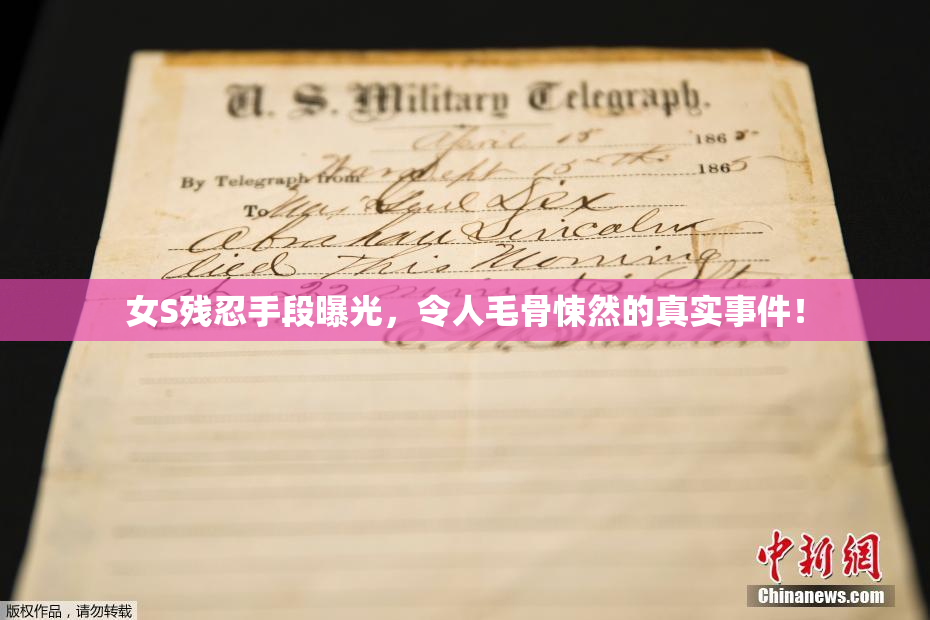 U. S. Military Telegraph.
April 15 1865
By Telegraph from War Dept 15th 1865
To Maj Genl Dix
Abraham Lincoln
died This Morning
at 22 minutes after
女S残忍手段曝光，令人毛骨悚然的真实事件！
中新网
Chinanews.com
版权作品，请勿转载